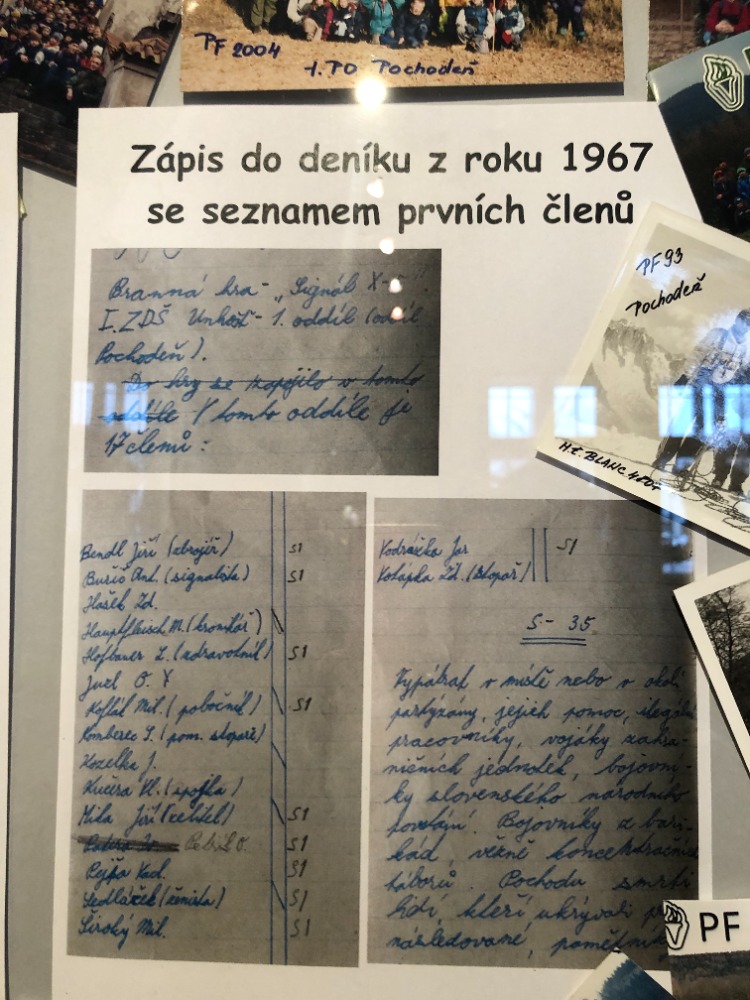 PF 2004
1.PO Pochodeň
Zápis do deníku z roku 1967
se seznamem prvních členů
PF 93
Pochodeň
Mt. BLANC 4807
Branná hra - „Signál X-
I. ZDŠ Unhošť - 1. oddíl (oddíl
Pochodeň).
Do hry se zapojilo v tomto
oddíle V tomto oddíle je
17 členů :
Bendl Jiří (zbrojíř) S1
Bureš Ant. (signalista) S1
Hašek Zd.
Hauptfleisch M. (kronikář)
Hofbauer Z. (zdravotník) S1
Juzl O.
Mil. (pobočník) S1
(pom. stopaře)
Kozelka J.
Kučera Vl. (spojka)
Míla Jiří S1
S1
Pejša Vacl. S1
Sedláček S1
Široký Mil. S1
Vodrážka Jar S1
Zd. (stopař)
S - 35
Vypátrat v místě nebo v okolí
partyzány, jejich pomoc,
pracovníky, vojáky zahra-
ničních jednotek, bojovní-
ky slovenského národního
povstání. Bojovníky z bari-
kád, vězně koncentračních
táborů. Pochodu smrti
lidí, kteří ukrývali
následované,
PF